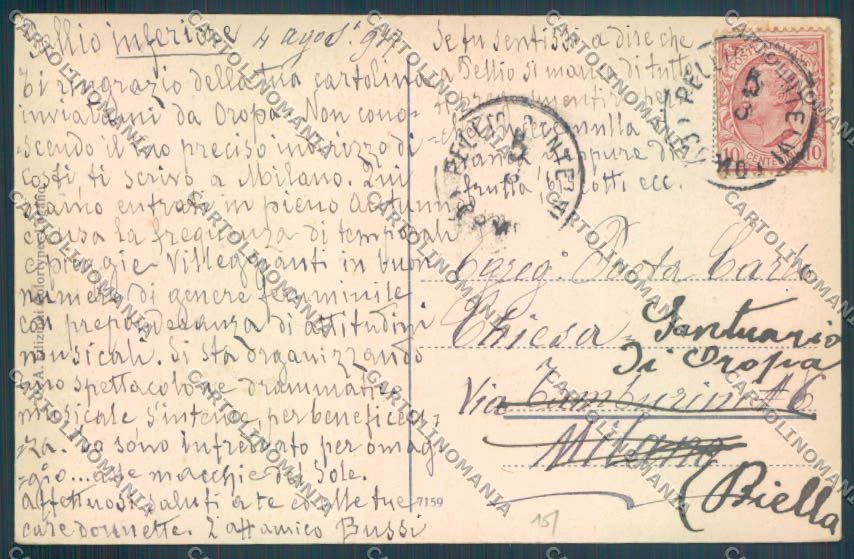 Pellio inferiore 4 agos. 917
Ti ringrazio della tua cartolina
inviatami da Oropa. Non cono-
scendo il tuo preciso indirizzo di
costì ti scrivo a Milano. Qui
siamo entrati in pieno autunno
causa la frequenza di temporali
e pioggie. Villeggianti in buon
numero di genere femminile
con preponderanza di attitudini
musicali. Si sta organizzando
uno spettacolone drammatico
musicale s'intende, per beneficen-
za. Io sono infreddato per omag-
gio... alle macchie del Sole.
Affettuosi saluti a te ed alle tue
care donnette. L'aff amico Bussi
Se tu sentissi a dire che
a Pellio si manca di tutto
nulla
oppure di
frutta, biscotti, ecc.
Careg.º Poeta Carlo
Chiesa
Santuario
di Oropa
Via Tamburini № 6
Milano
(Biella
7159
15/
PELLIO INTELVI
COMO
PELLIO INTELVI
COMO
10 CENTESIMI 10
CARTOLINOMANIA